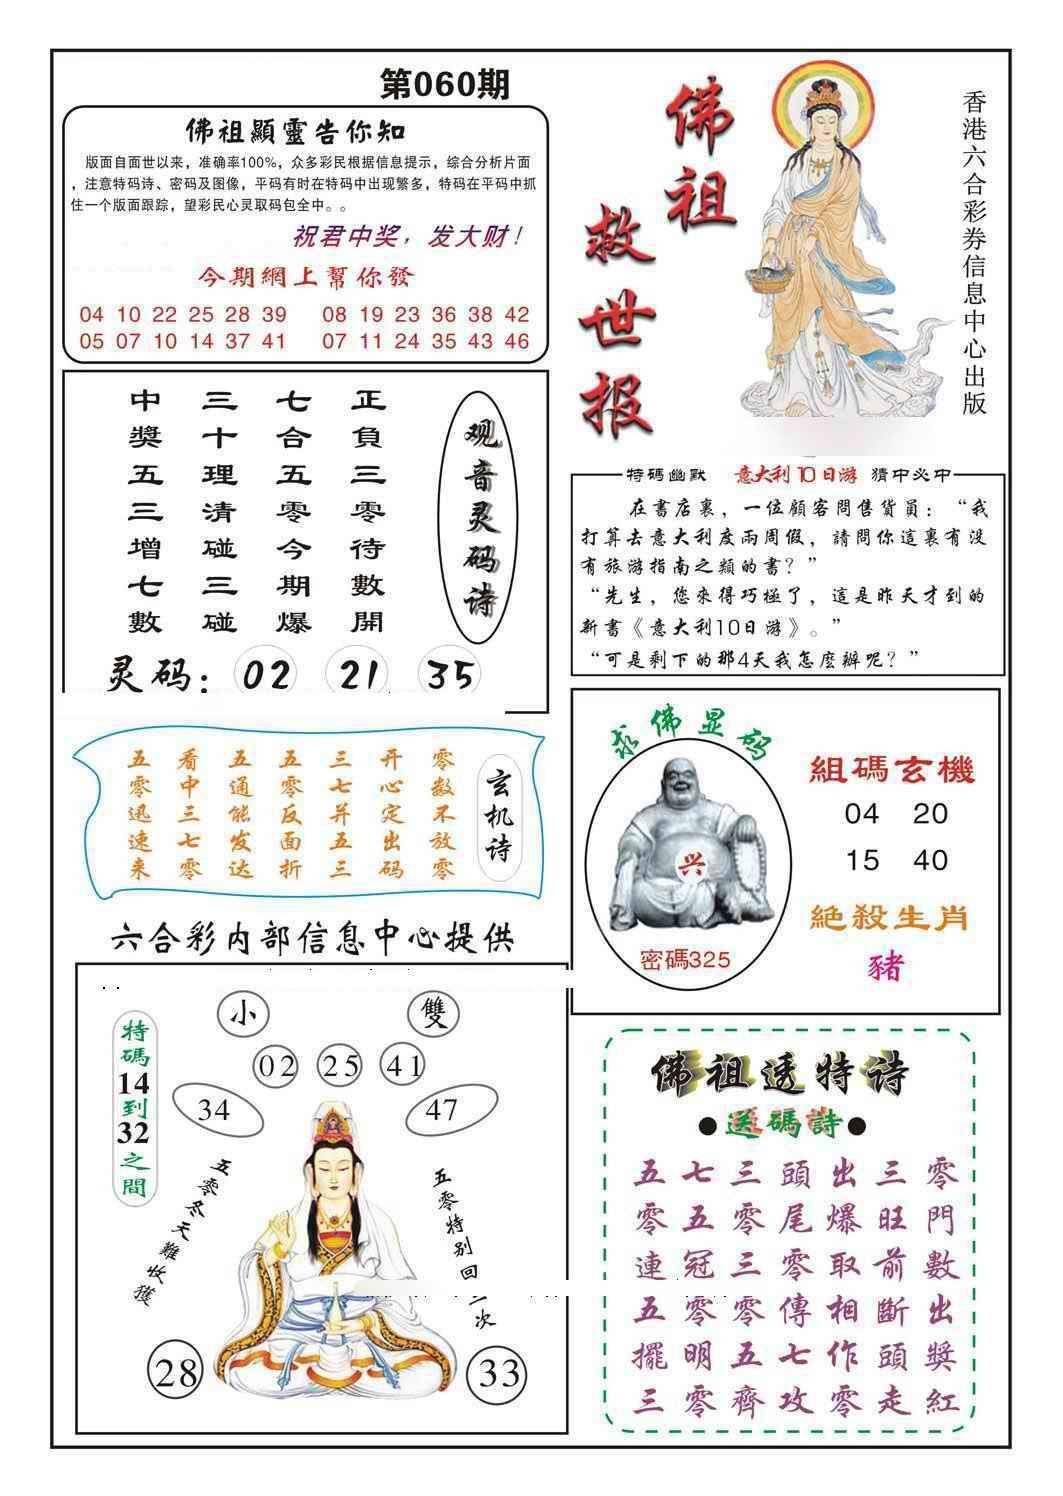 第060期
佛祖顯靈告你知
版面自面世以来，准确率100%，众多彩民根据信息提示，综合分析片面
，注意特码诗、密码及图像，平码有时在特码中出现繁多，特码在平码中抓
住一个版面跟踪，望彩民心灵取码包全中。。
祝君中奖，发大财！
今期網上幫你發
04 10 22 25 28 39 08 19 23 36 38 42
05 07 10 14 37 41 07 11 24 35 43 46
佛祖
救世报
香港六合彩券信息中心出版
观音灵码诗
正負三零待數開
七合五零今期爆
三十理清碰三碰
中獎五三增七數
灵码： 02 21 35
特碼幽默 意大利10日游 猜中必中
在書店裏，一位顧客問售貨員：“我
打算去意大利度兩周假，請問你這裏有没
有旅游指南之類的書？”
“先生，您來得巧極了，這是昨天才到的
新書《意大利10日游》。”
“可是剩下的那4天我怎麽辦呢？”
玄机诗
零数不放零
开心定出码
三七并五三
五零反面折
五通能发达
看中三七零
五零迅速来
求佛显码
兴
密碼325
組碼玄機
04 20
15 40
絶殺生肖
豬
六合彩内部信息中心提供
特碼14到32之間
小 雙
02 25 41
34 47
五零冬天難收獲
五零特别回
次
28 33
佛祖透特诗
●送碼詩●
零門數出獎紅
三旺前斷頭走
出爆取相作零
頭尾零傳七攻
三零三零五齊
七五冠零明零
五零連五擺三